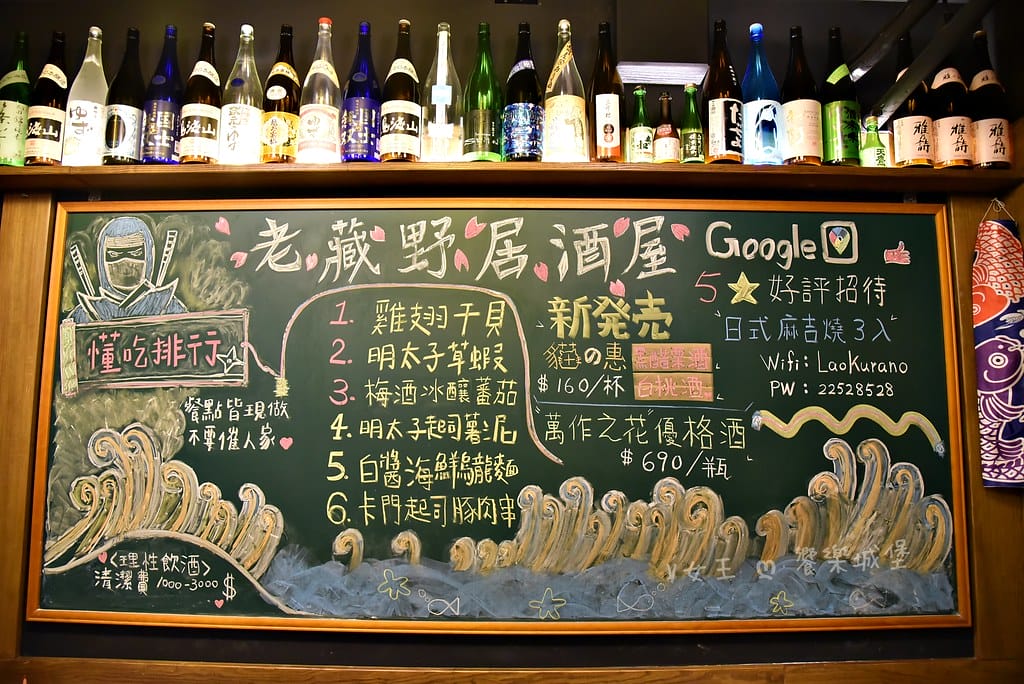 老藏野居酒屋
Google
5 ★ 好評招待
"日式麻吉燒3入"
Wifi: LaoKurano
PW: 22528528
懂吃排行
餐點皆現做
不要催人家
1. 雞翅干貝
2. 明太子草蝦
3. 梅酒冰釀蕃茄
4. 明太子起司薯泥
5. 白醬海鮮烏龍麵
6. 卡門起司豚肉串
新発売
の惠
$160/杯
白桃酒
"萬作之花"優格酒
$690/瓶
<理性飲酒>
清潔費 1000-3000 $
女王 餐樂城堡
鳥海山
ゆず
鳥海山
雅楽